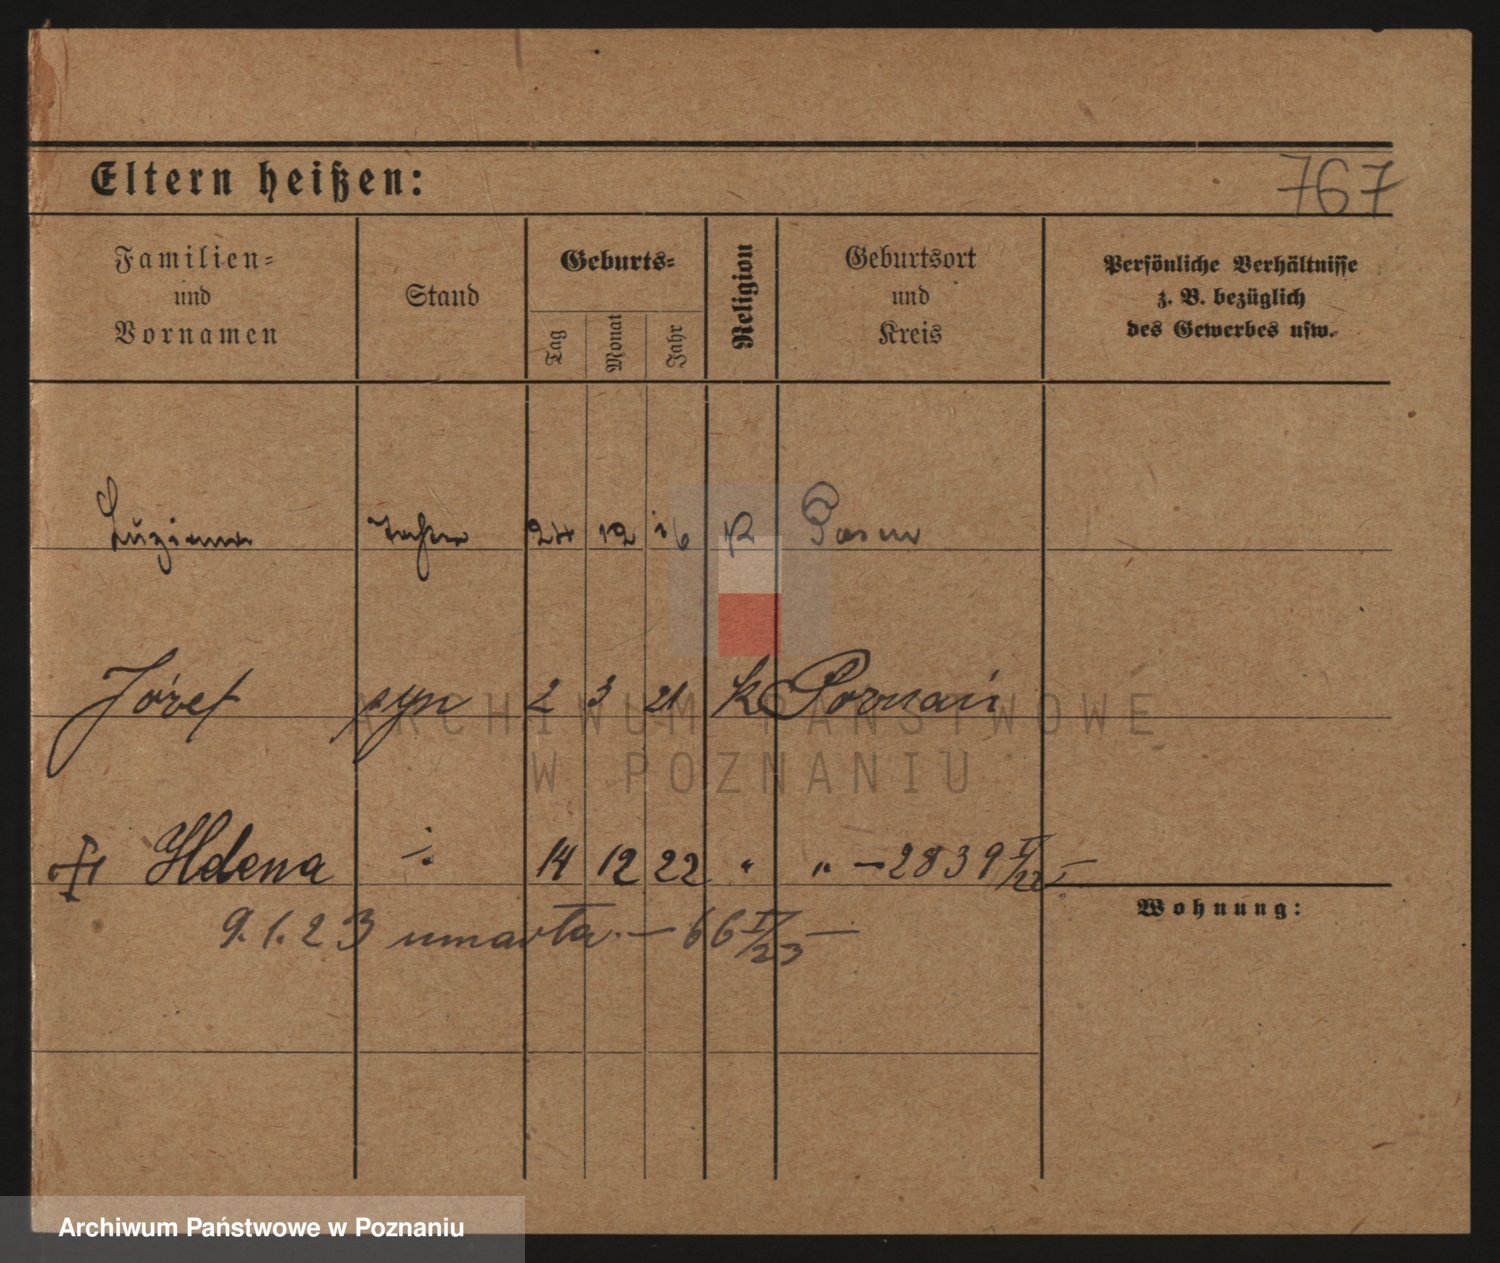 Eltern heißen:
767
Familien-
und
Vornamen
Stand
Geburts-
Tag
Monat
Jahr
Religion
Geburtsort
und
Kreis
Persönliche Verhältnisse
z. B. bezüglich
des Gewerbes usw.
24 12 16 K Posen
Józef syn 2 3 21 k Poznań
ARCHIWUM PAŃSTWOWE
W POZNANIU
Helena 14 12 22 " " - 2839
Wohnung:
9.1.23 umarła - 66 I/23 -
Archiwum Państwowe w Poznaniu